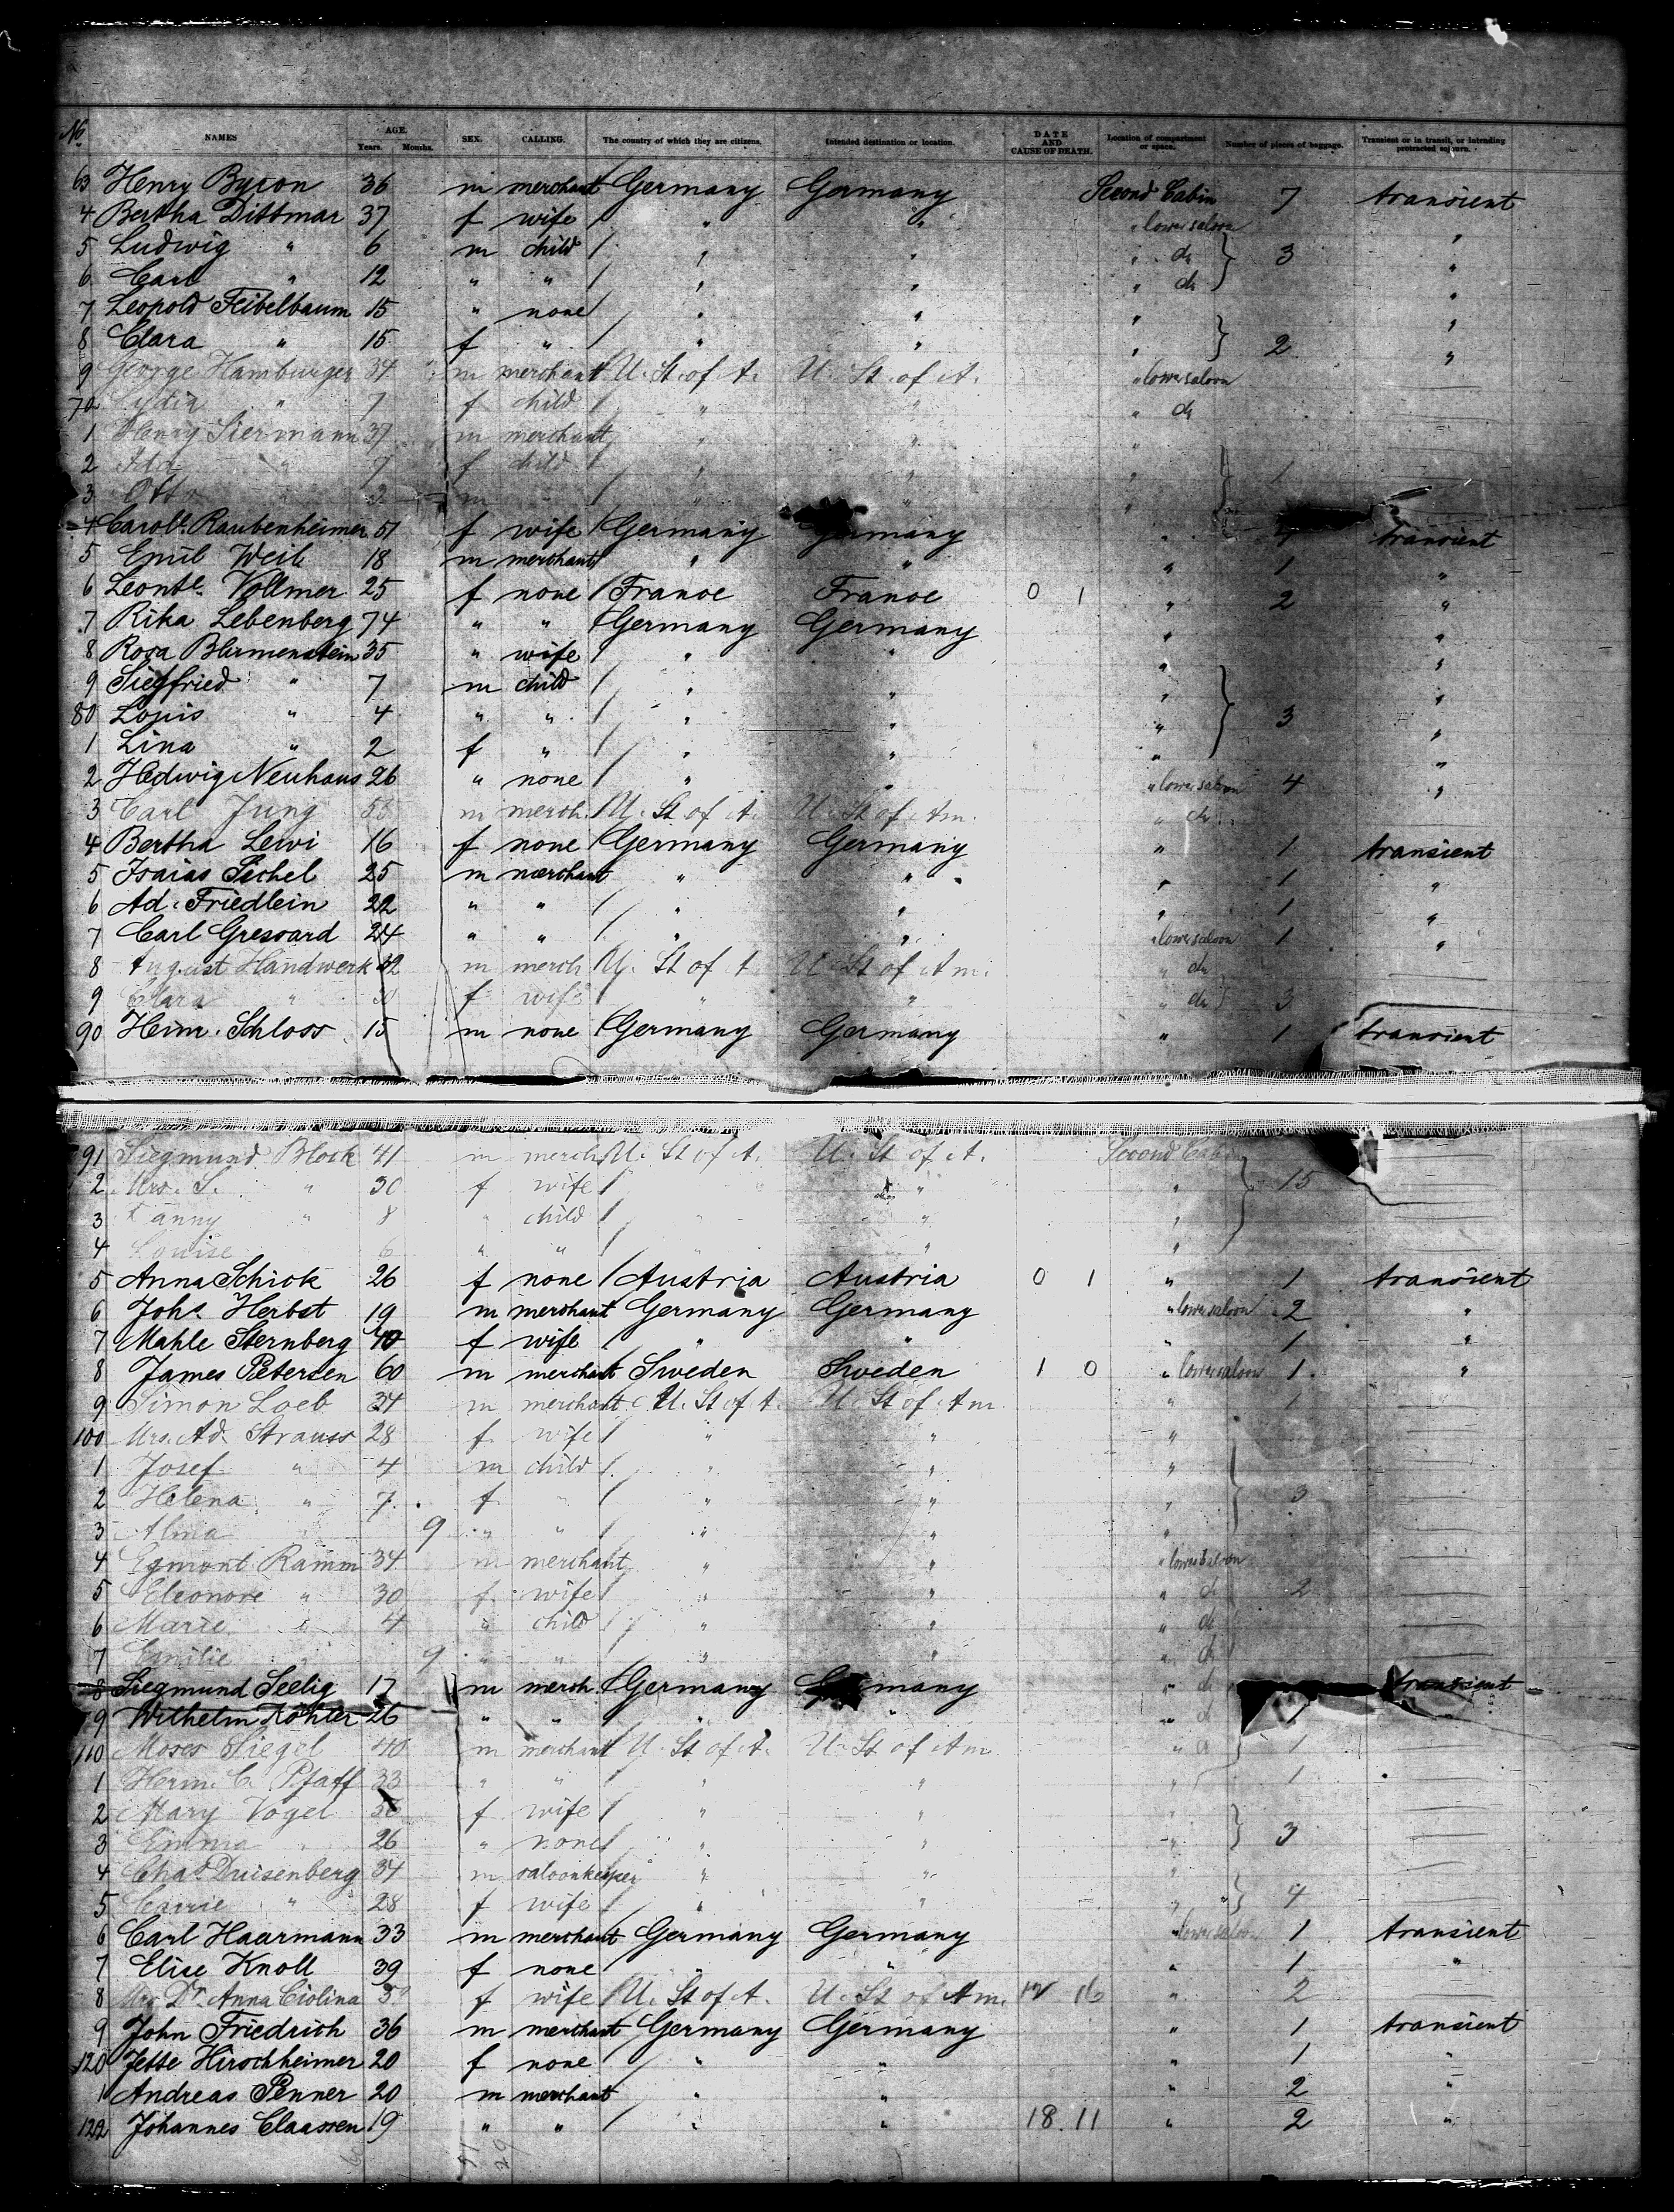 No NAMES AGE. Years. Months. SEX. CALLING. The country of which they are citizens. Intended destination or location. DATE AND CAUSE OF DEATH. Location of compartment or space. Number of pieces of baggage. Transient or in transit, or intending protracted sojourn.
63 Henry Byron 36 m merchant Germany Germany Second Cabin 7 transient
4 Bertha Dittmar 37 f wife " " " lower saloon "
5 Ludwig " 6 m child " " " do 3 "
6 Carl " 12 " " " " " do "
7 Leopold Feibelbaum 15 " none " " " "
8 Clara " 15 f " " " " 2 "
9 George Hamburger 34 m merchant U. St. of A. U. St. of A. " lower saloon
70 Lydia " 7 f child " " " do
1 Henry Siermann 37 m merchant " " "
2 Ida " 7 f child " " " 1
3 Otto " 3 m " " "
4 Carole. Raubenheimer 51 f wife Germany Germany " transient
5 Emil Weil 18 m merchant " " " 1 "
6 Leontе. Vollmer 25 f none France France 0 1 " 2 "
7 Rika Lebenberg 74 " " Germany Germany " "
8 Rosa Blumenstein 35 " wife " " " "
9 Siegfried " 7 m child " " " "
80 Louis " 4 " " " " " 3 "
1 Lina " 2 f " " " " "
2 Hedwig Neuhaus 26 " none " " " lower saloon 4 "
3 Carl Jung 55 m merch. U. St of A. U. St of Am. " do
4 Bertha Lewi 16 f none Germany Germany " 1 transient
5 Isaias Sichel 25 m merchant " " " 1 "
6 Ad. Friedlein 22 " " " " " 1 "
7 Carl Gressard 24 " " " " " lower saloon 1 "
8 August Handwerk 42 m merch U. St of A U. St of Am. " do
9 Clara " 30 f wife " " " do 3
90 Heinr. Schloss 15 m none Germany Germany " 1 transient
91 Siegmund Block 41 m merch. U. St of A. U. St of A. Second Cabin
2 Mrs. S. " 30 f wife " " 15
3 Fanny " 8 " child " "
4 Louise " 6 " " " " "
5 Anna Schick 26 f none Austria Austria 0 1 " 1 transient
6 Johs. Herbst 19 m merchant Germany Germany " lower saloon 2 "
7 Mahle Sternberg 40 f wife " " " 1 "
8 James Petersen 60 m merchant Sweden Sweden 1 0 " lower saloon 1 "
9 Simon Loeb 34 m merchant U. St of A. U. St of Am. " 1
100 Mrs. Ad. Strauss 28 f wife " " "
1 Josef " 4 m child " " "
2 Helena " 7 f " " " " 3
3 Alma " 9 " " " " "
4 Egmont Ramm 34 m merchant " " " lower saloon
5 Eleonore " 30 f wife " " " do 2
6 Marie " 4 " child " " " do
7 Emilie " 9 " " " " " do
8 Siegmund Seelig 17 m merch. Germany Germany " do transient
9 Wilhelm Köhler 26 " " " " " do
110 Moses Siegel 40 m merchant U. St of A. U. St of Am. " do 1
1 Herm. C. Pfaff 33 " " " " " 1
2 Mary Vogel f wife " " "
3 Emma " 26 " none " " " 3
4 Chas Duisenberg 34 m saloonkeeper " " "
5 Carrie " 28 f wife " " " 4
6 Carl Haarmann 33 m merchant Germany Germany " lower saloon 1 transient
7 Elise Knoll 39 f none " " " 1 "
8 Mrs Dr. Anna Ciolina f wife U. St of A. U. St of Am. 12 16 " 2
9 John Friedrich 36 m merchant Germany Germany " 1 transient
120 Jette Hirschheimer 20 f none " " " 1 "
1 Andreas Penner 20 m merchant " " " 2 "
122 Johannes Claassen 19 " " " " 18. 11 " 2 "